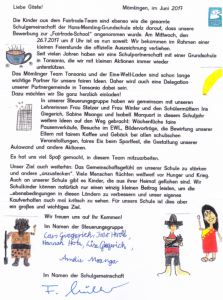 Liebe Gäste! Möntingen, im Juni 2017
Die Kinder aus dem Fairtrade-Team sind ebenso wie die gesamte
Schulgemeinschaft der Hans-Memling-Grundschule stolz darauf, dass unsere
Bewerbung zur „Fairtrade-School" angenommen wurde. Am Mittwoch, den
28.7.2017 um 8 Uhr ist es nun soweit: Wir bekommen im Rahmen einer
kleinen Feierstunde die offizielle Auszeichnung verliehen.
Seit vielen Jahren haben wir eine Schulpartnerschaft mit einer Grundschule
in Tansania, die wir mit kleinen Aktionen immer wieder
unterstützen.
Das Mömlinger Team Tansania und der Eine-Welt-Laden sind schon lange
wichtige Partner für unsere Ideen. Daher wird auch eine Delegation
unserer Partnergemeinde in Tansania dabei sein.
Dazu möchten wir Sie ganz herzlich einladen!
In unserer Steuerungsgruppe haben wir gemeinsam mit unseren
Lehrerinnen Frau Stelzer und Frau Winter und den Schülermüttern Iris
Giegerich, Sabine Maonga und Isabell Marquart in diesem Schuljahr
weitere Ideen auf den Weg gebracht: Wöchentliche faire
Pausenverkäufe, Besuche im EWL, Bildervorträge, die Bewirtung unserer
Eltern mit fairem Kaffee und Gebäck bei allen schulischen
Veranstaltungen, faires Eis beim Sportfest, die Gestaltung unserer
Aulawand und andere Aktionen.
Es hat uns viel Spaß gemacht, in diesem Team mitzuarbeiten.
Unser Ziel auch weiterhin: Das Gemeinschaftsgefühl an unserer Schule zu stärken
und andere „anzustecken". Viele Menschen flüchten weltweit vor Hunger und Krieg.
Auch an unserer Schule gibt es Kinder, die aus ihrer Heimat geflohen sind. Wir
Schulkinder können natürlich nur einen winzig kleinen Beitrag leisten, um die
Lebensbedingungen in diesen Ländern zu verbessern und unser eigenes
Kaufverhalten auch mal kritisch zu sehen. Für unsere Schule ist dies aber
ein großes und wichtiges Ziel.
Wir freuen uns auf Ihr Kommen!
Im Namen der Steuerungsgruppe
Im Namen der Schulgemeinschaft